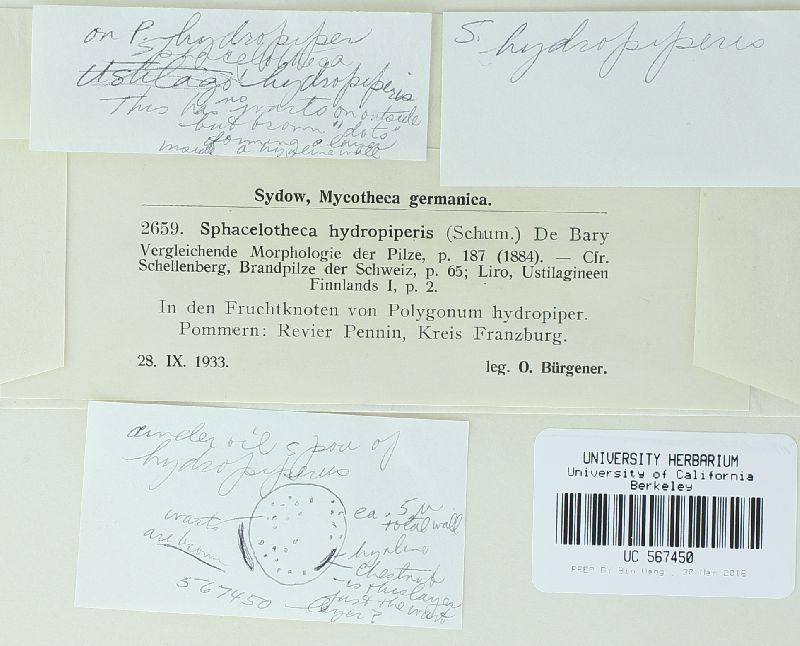 on P. hydropiper
Sphacelotheca
Ustilago hydropiperis
This has no warts on outside
but brown "dots"
forming a layer
inside a hyaline wall
S. hydropiperis
Sydow, Mycotheca germanica.
2659. Sphacelotheca hydropiperis (Schum.) De Bary
Vergleichende Morphologie der Pilze, p. 187 (1884). — Cfr.
Schellenberg, Brandpilze der Schweiz, p. 65; Liro, Ustilagineen
Finnlands I, p. 2.
In den Fruchtknoten von Polygonum hydropiper.
Pommern: Revier Pennin, Kreis Franzburg.
28. IX. 1933.
leg. O. Bürgener.
under oil spou of
hydropiperus
warts
are brown
ca .5 µ
total wall
hyaline
chestnut
- is this layer
just the wart
layer?
567450
UNIVERSITY HERBARIUM
University of California
Berkeley
UC 567450